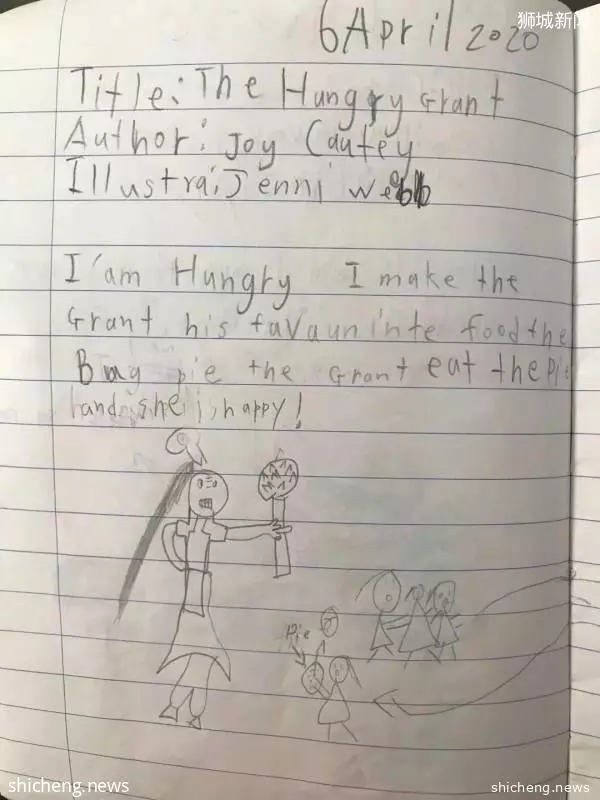 狮城新闻
6 April 2020
Title: The Hungry Grant
Author: Joy Cautey
Illustrai Jenni Webb
I'am Hungry I make the
Grant his favauninte food the
Bug pie the Grant eat the Pie
and she is happy!
Pie
shicheng.news
shicheng.news